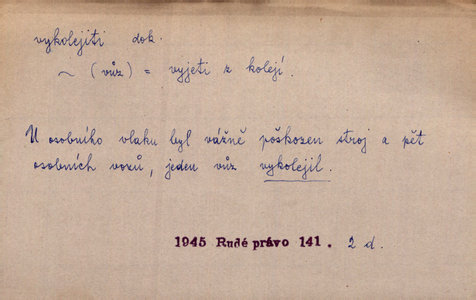 vykolejiti dok.
~ (vůz) = vyjeti z kolejí.
U osobního vlaku byl vážně poškozen stroj a pět
osobních vozů, jeden vůz vykolejil.
1945 Rudé právo 141. 2 d.